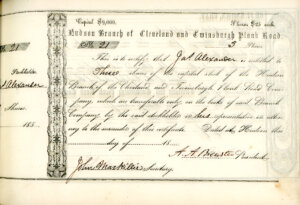 Capital $9,000. Shares $25 each
Hudson Branch of Cleveland and Twinsburgh Plank Road.
No. 21
No. 21 3 Shares
This is to certify that Jas Alexander is entitled to
Three shares of the capital stock of the Hudson
Stockholder
Branch of the Cleveland and Twinsburgh Plank Road Com-
s Alexander
pany, which are transferable only on the books of said Branch
Company by the said stockholder or his representative in
Shares
to the surrender of this certificate. Dated at Hudson this
185
day of 18
A. A. Brewster President
John Secretary